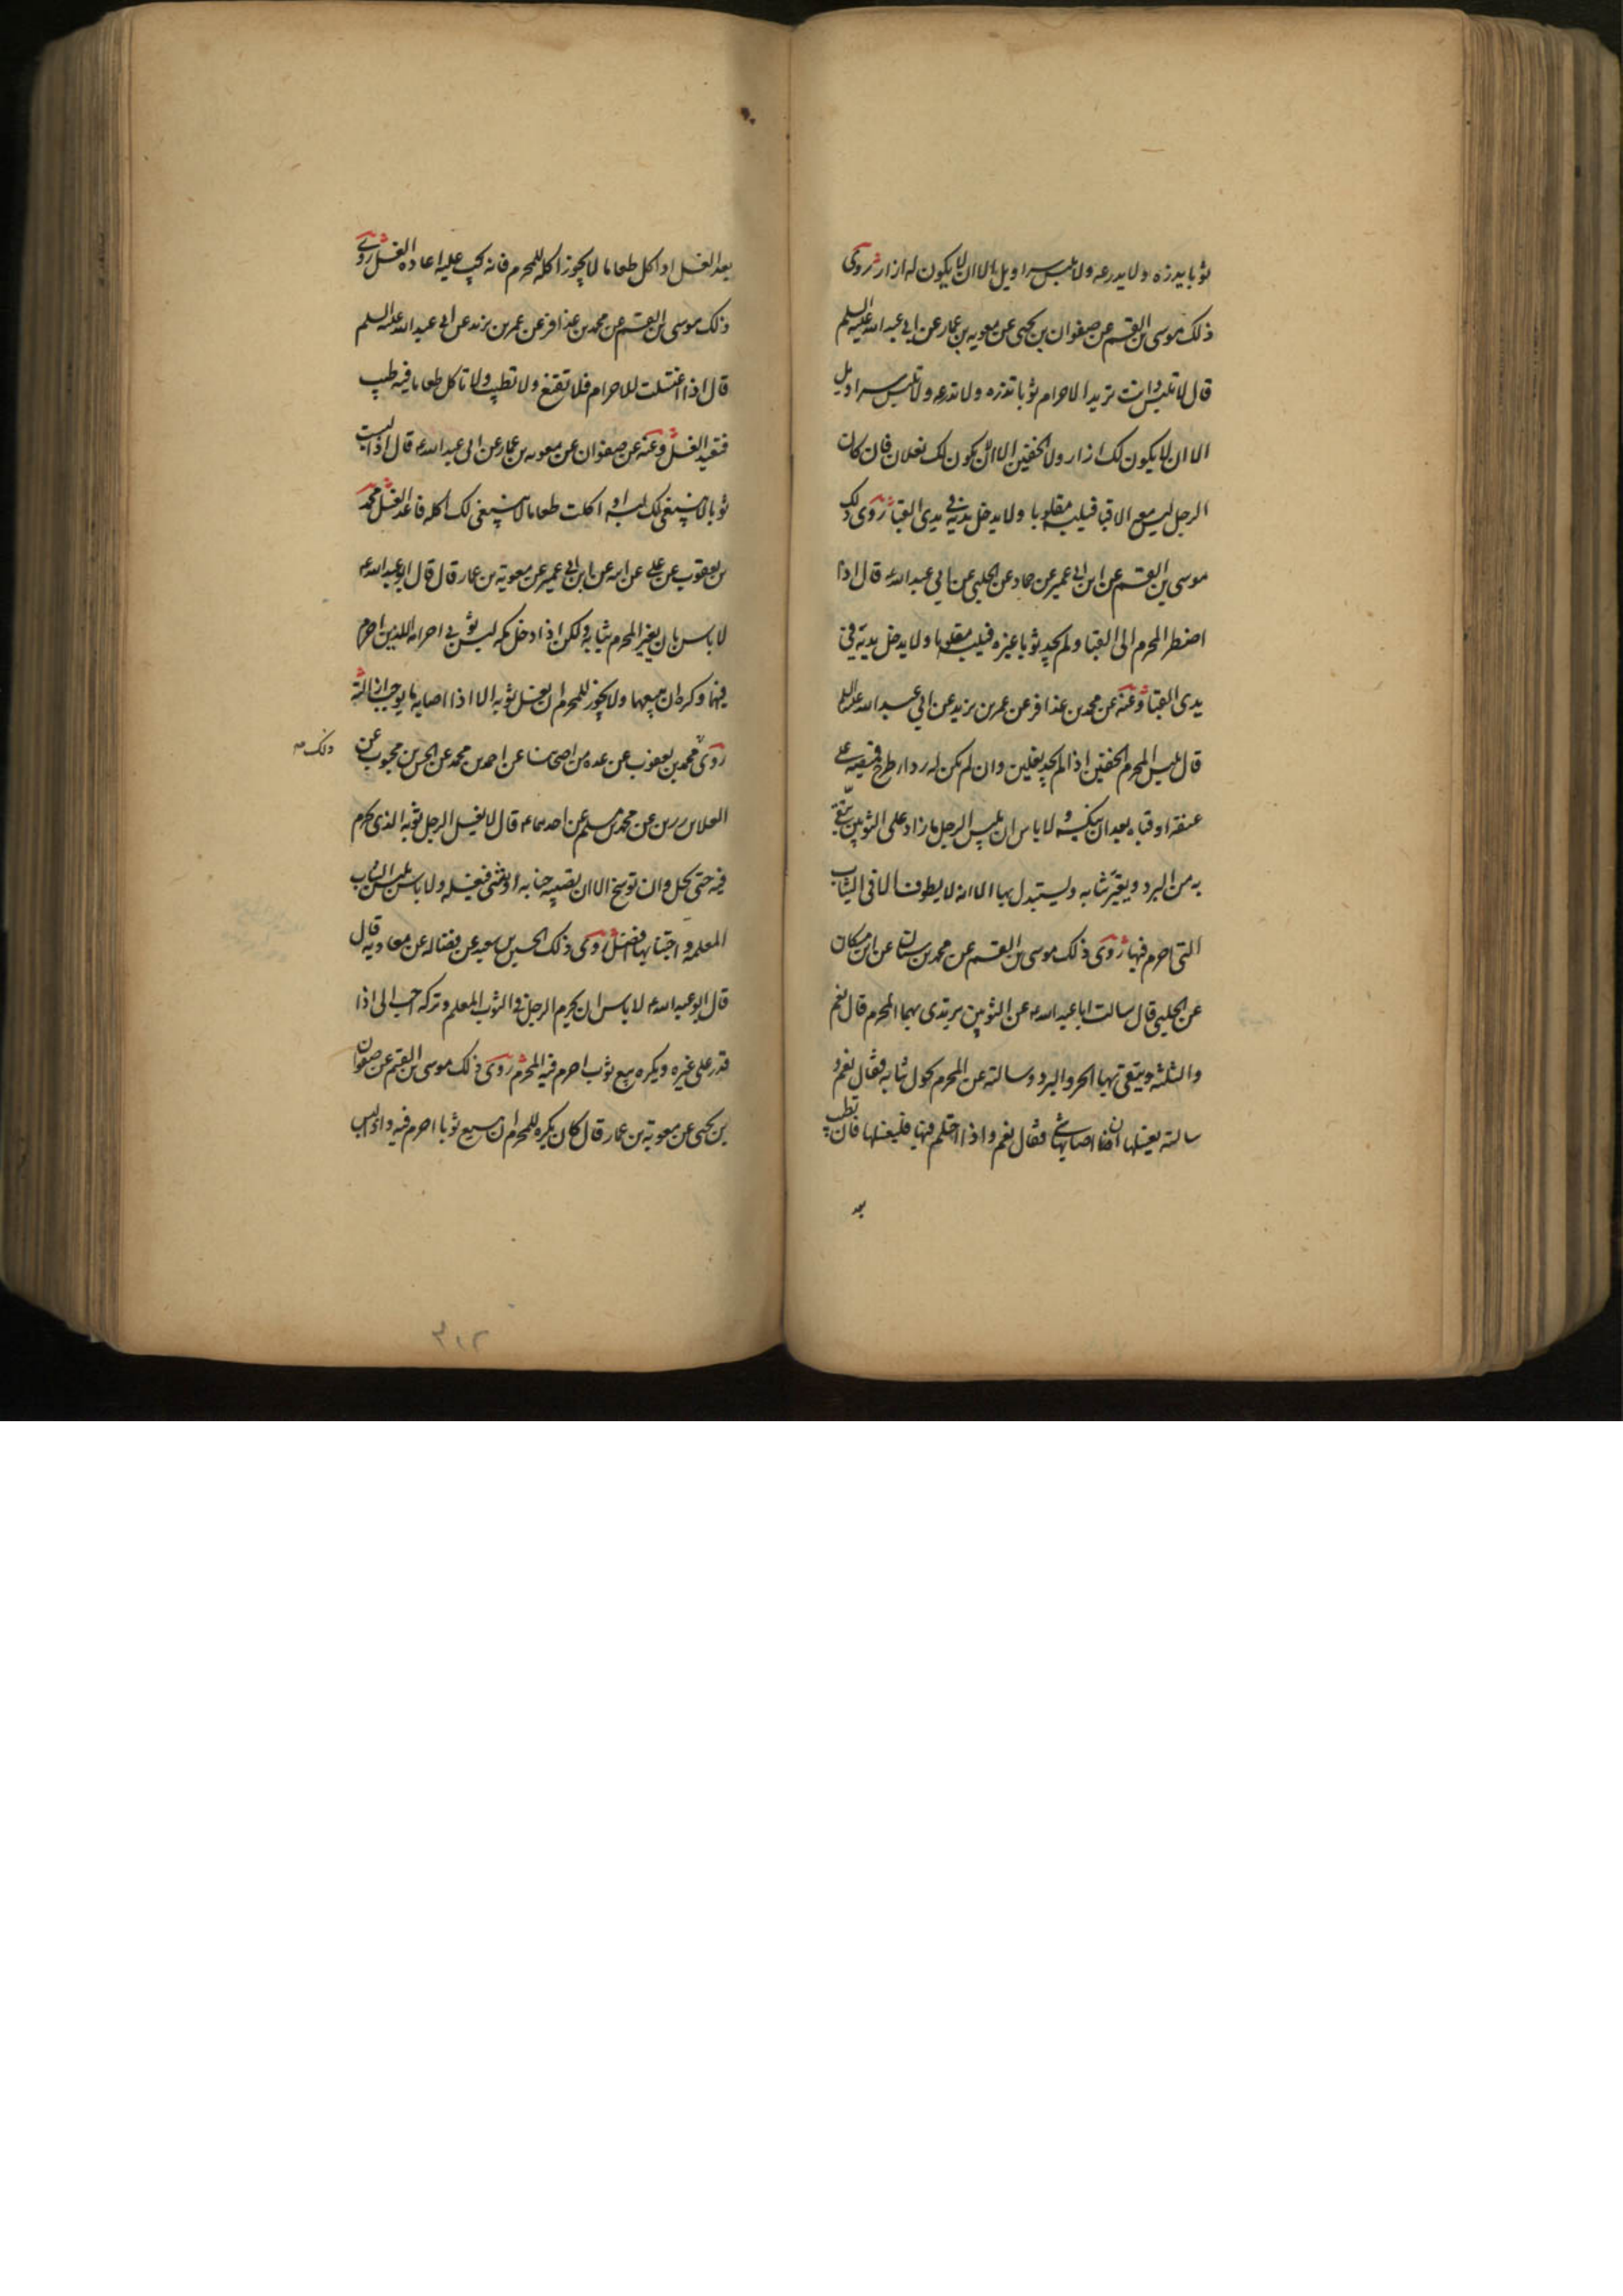 ثوبا يدرزه ولا يدرعه ولا يلبس سراويل الا ان لا يكون له ازار روى
ذلك موسى بن القسم عن صفوان بن يحيى عن معويه بن عمار عن ابي عبد الله عليه السلم
قال لا تلبس وانت تريد الاحرام ثوبا تذره ولا تدرعه ولا تلبس سراويل
الا ان لا يكون لك ازار ولا الخفين الا ان لا يكون لك نعلان فان كان
الرجل ليس معه الا قبا فيلبسه مقلوبا ولا يدخل يديه في يدى القبا روى ذلك
موسى بن القسم عن ابن ابي عمير عن حماد عن الحلبي عن ابي عبد الله ع قال اذا
اضطر المحرم الى القبا ولم يجد ثوبا غيره فيلبسه مقلوبا ولا يدخل يديه في
يدى القبا وعنه عن محمد بن عذافر عن عمر بن يزيد عن ابي عبد الله عليه السلم
قال يلبس المحرم الخفين اذا لم يجد نعلين وان لم يكن له ردا طرح قميصه على
عنقه او قباه بعد ان ينكسه ولا باس ان يلبس الرجل ما زاد على الثوبين يتقي
به من البرد ويغير ثيابه ويستبدل بها الا انه لا يطوف الا في الثياب
التي احرم فيها روى ذلك موسى بن القسم عن محمد بن سنان عن ابن مسكان
عن الحلبي قال سالت ابا عبد الله ع عن الثوبين يرتدى بهما المحرم قال نعم
والثلثه ويتقى بها الحر والبرد وسالته عن المحرم يحول ثيابه فقال نعم و
سالته يغسلها ان اصابها شي فقال نعم واذا احتلم فيها فليغسلها فان تطيب
بعد
بعد الغسل او اكل طعاما لا يجوز اكله للمحرم فانه يجب عليه اعاده الغسل روى
ذلك موسى بن القسم عن محمد بن عذافر عن عمر بن يزيد عن ابي عبد الله عليه السلم
قال اذا اغتسلت للاحرام فلا تقنع ولا تطيب ولا تاكل طعاما فيه طيب
فتعيد الغسل وعنه عن صفوان عن معويه بن عمار عن ابي عبد الله ع قال اذا لبست
ثوبا لا ينبغي لك لبسه او اكلت طعاما لا ينبغي لك اكله فاعد الغسل محمد
بن يعقوب عن علي عن ابيه عن ابن ابي عمير عن معوية بن عمار قال قال ابو عبد الله ع
لا باس بان يغير المحرم ثيابه ولكن اذا دخل مكه لبس ثوبي احرامه اللذين احرم
فيهما وكره ان يبيعهما ولا يجوز للمحرم ان يغسل ثوبه الا اذا اصابه ما يوجب ازالته
روى محمد بن يعقوب عن عده من اصحابنا عن احمد بن محمد عن الحسن بن محبوب عن
ذلك
العلا بن رزين عن محمد بن مسلم عن احدهما ع قال لا يغسل الرجل ثوبه الذى يحرم
فيه حتى يحل وان توسخ الا ان تصيبه جنابه او شي فيغسله ولا باس بلبس الثياب
المعلمه واجتنابها افضل روى ذلك الحسين بن سعيد عن فضاله عن معاويه قال
قال ابو عبد الله ع لا باس ان يحرم الرجل في الثوب المعلم وتركه احب الى اذا
قدر على غيره ويكره بيع ثوب احرم فيه المحرم روى ذلك موسى بن القسم عن صفوان
بن يحيى عن معوية بن عمار قال كان يكره للمحرم ان يبيع ثوبا احرم فيه واذا لبس
٣١٢